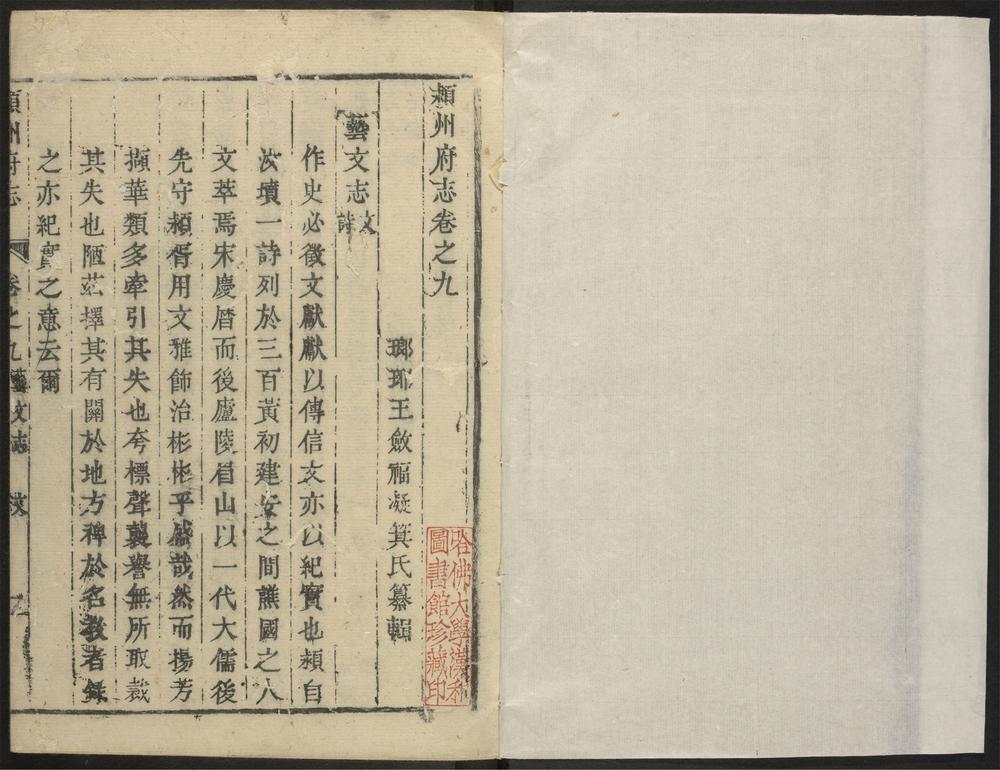 潁州府志卷之九
瑯琊王斂福凝箕氏纂輯
藝文志 文 詩
作史必徵文獻獻以傳信文亦以紀實也潁自
汝墳一詩列於三百黃初建安之間譙國之人
文萃焉宋慶曆而後廬陵眉山以一代大儒後
先守潁胥用文雅飾治彬彬乎盛哉然而揚芳
擷華類多牽引其失也夸標聲襲譽無所取裁
其失也陋茲擇其有關於地方裨於名教者錄
之亦紀實之意云爾
潁州府志 卷之九藝文志 文
哈佛大學漢和
圖書館珍藏印